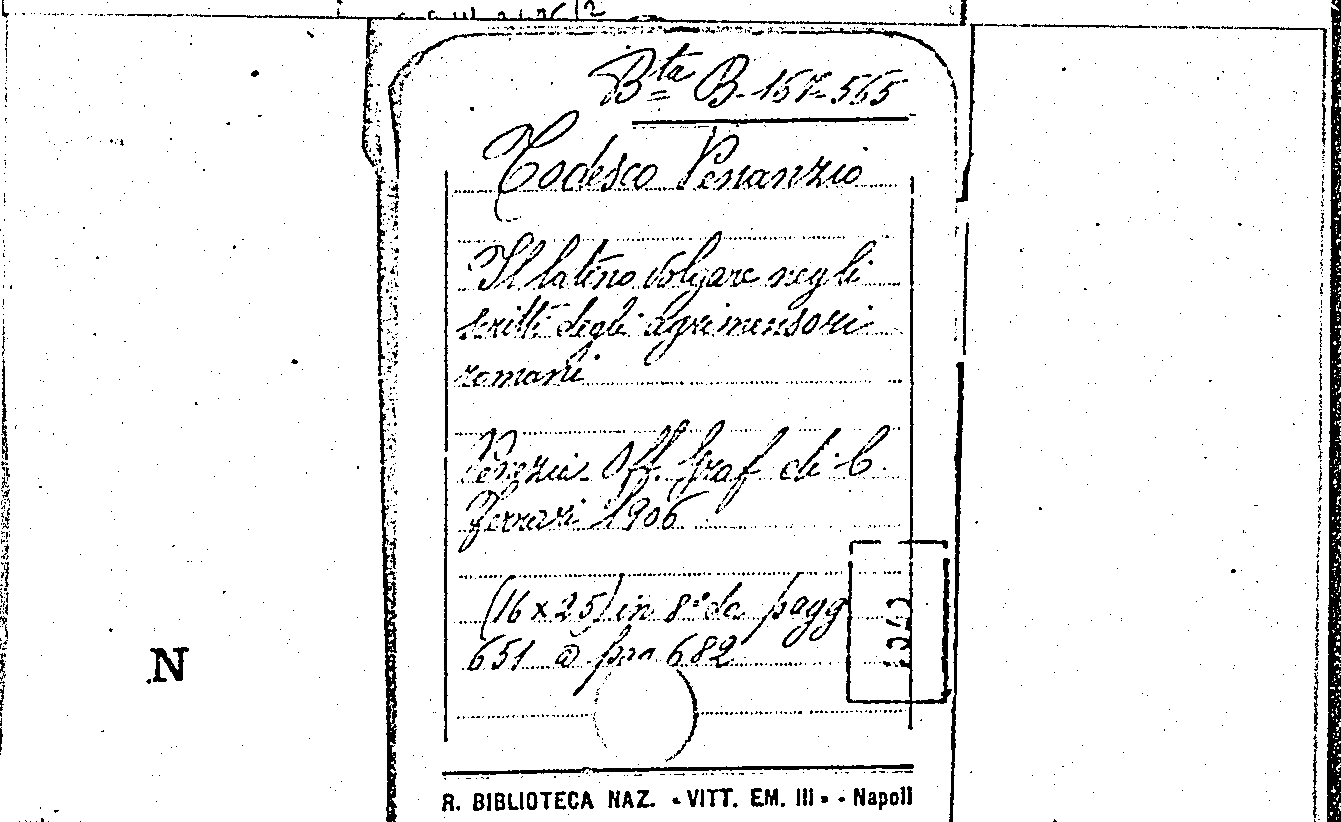 Bta B. 167-565
Todesco Venanzio
Il latino volgare negli
scritti degli agrimensori
romani
Venezia. Off. Graf di C.
Ferrari 1906
(16 x 25) in 8° da pagg
651 a pag 682
N
R. BIBLIOTECA NAZ. - VITT. EM. III - - Napoli